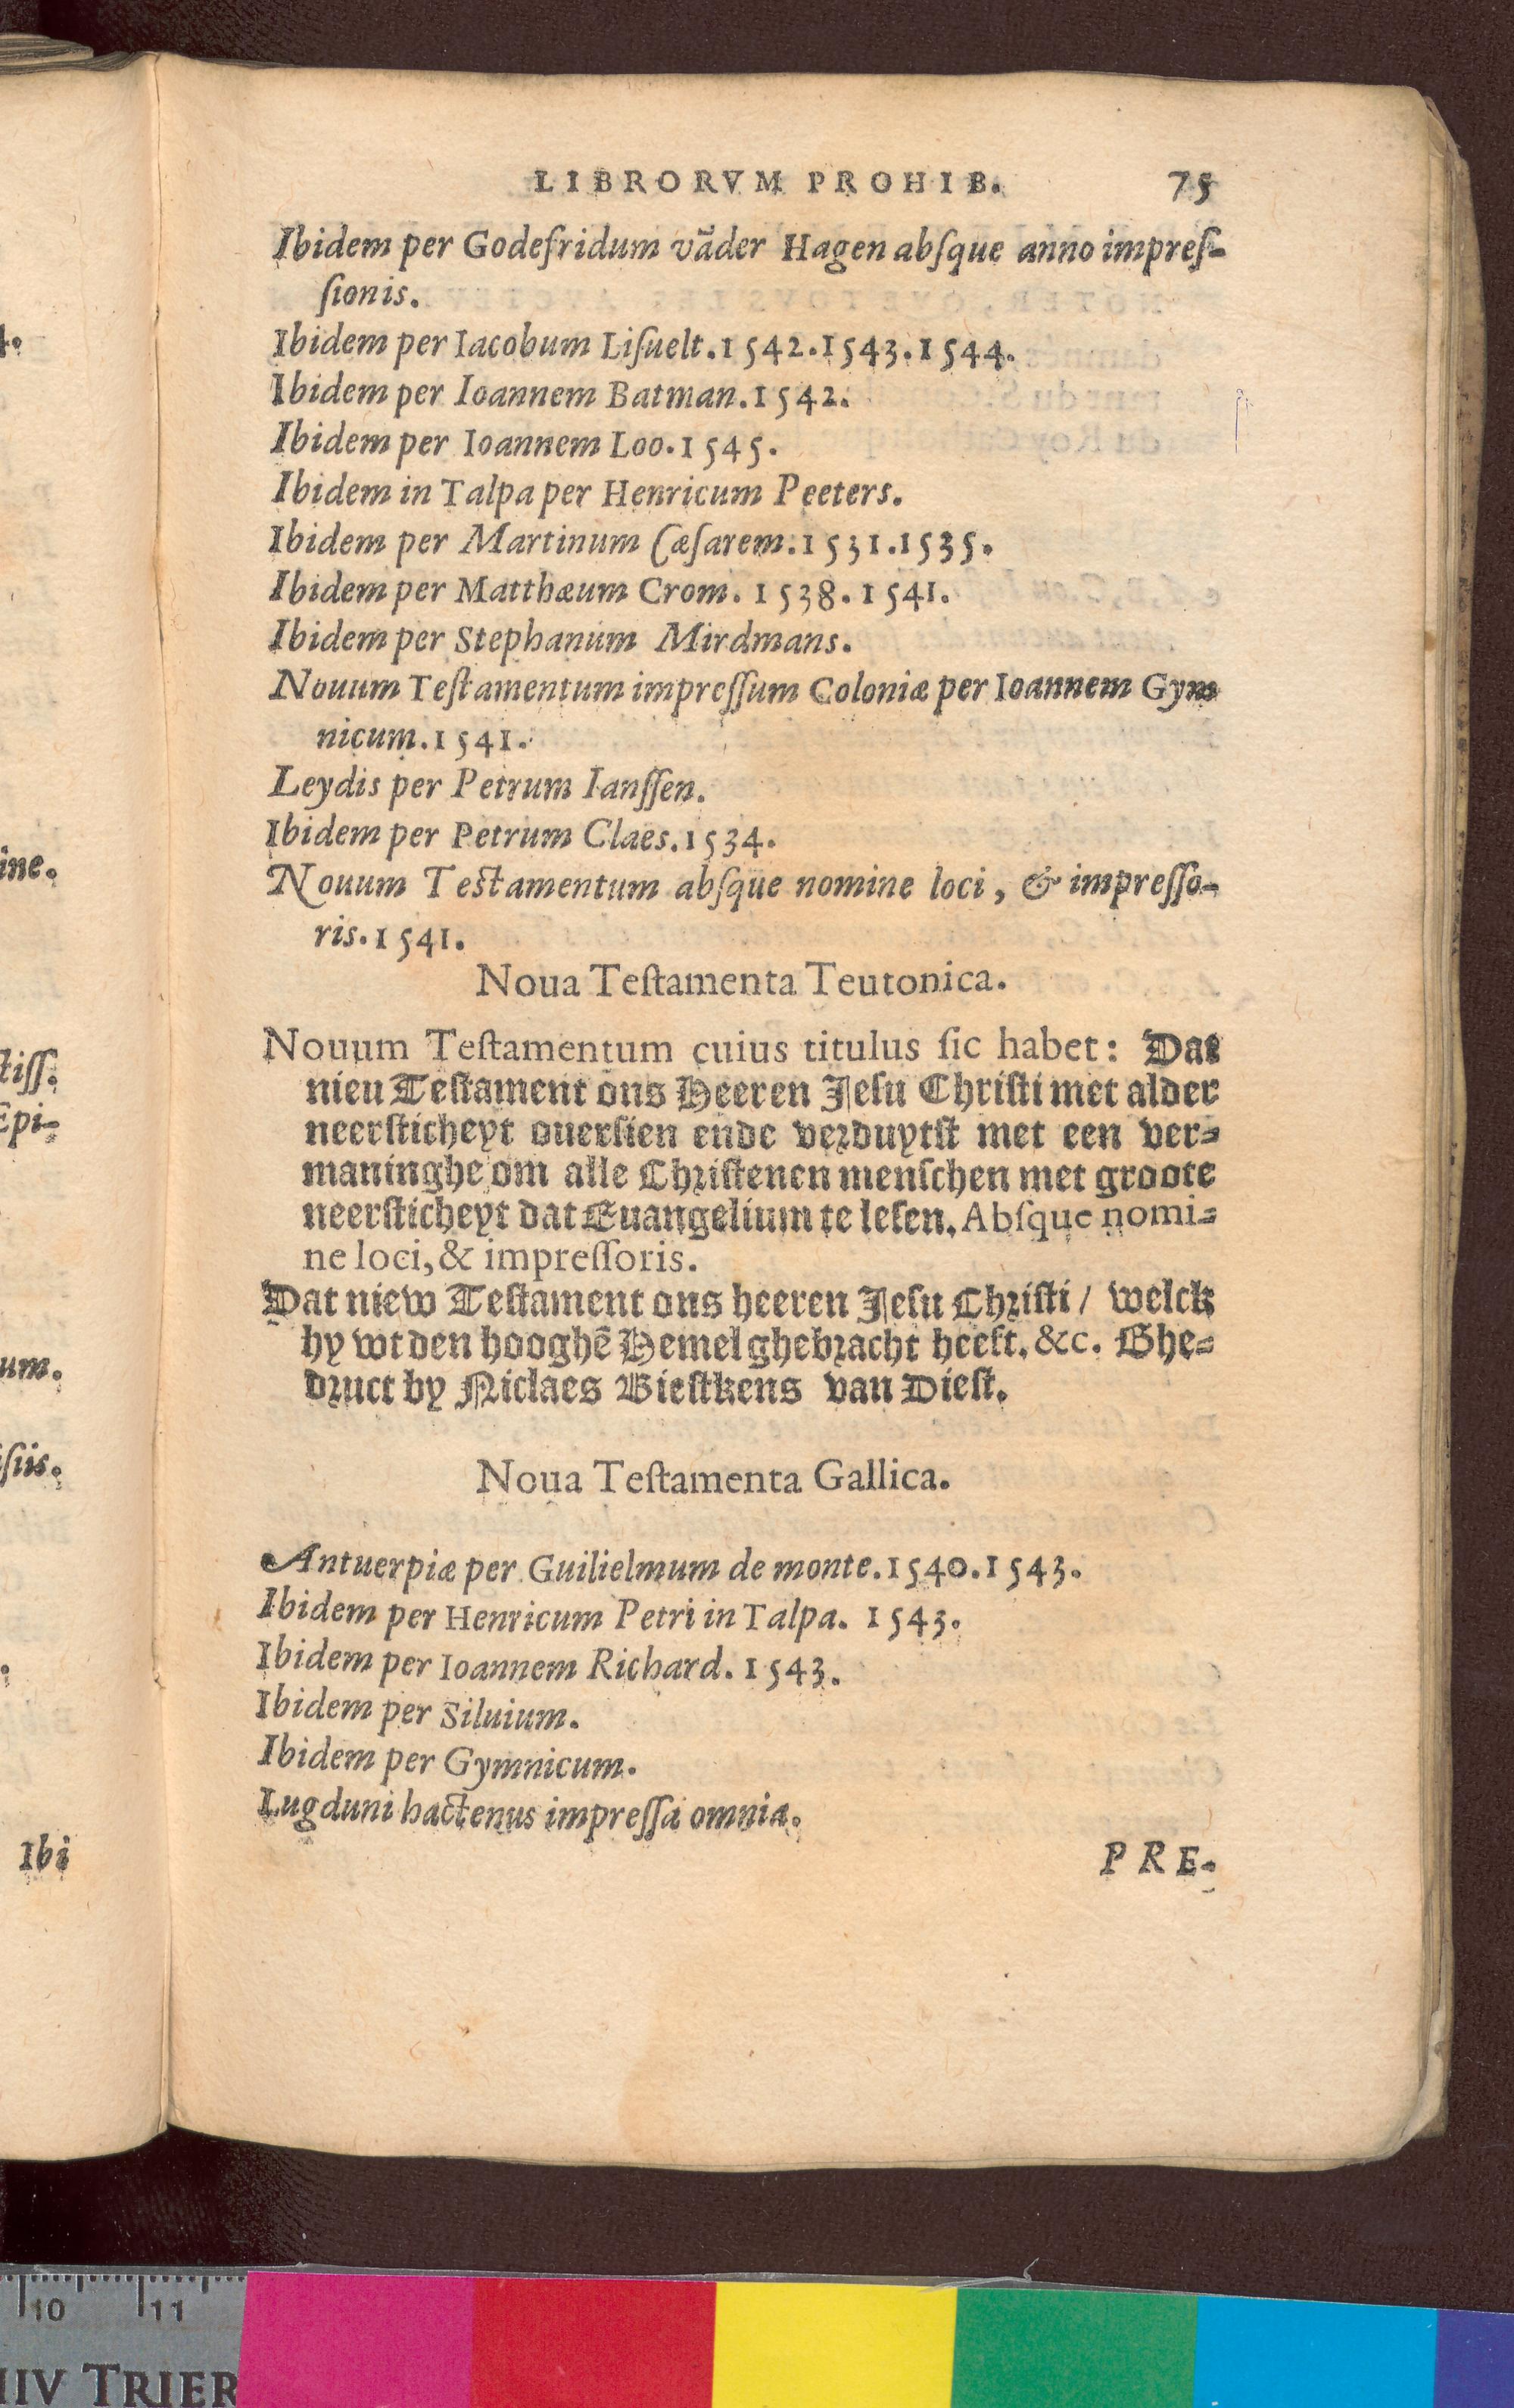 LIBRORVM PROHIB. 75
Ibidem per Godefridum vāder Hagen absque anno impreſ-
ſionis.
Ibidem per Iacobum Liſuelt. 1542. 1543. 1544.
Ibidem per Ioannem Batman. 1542.
Ibidem per Ioannem Loo. 1545.
Ibidem in Talpa per Henricum Peeters.
Ibidem per Martinum Cæſarem. 1531. 1535.
Ibidem per Matthæum Crom. 1538. 1541.
Ibidem per Stephanum Mirdmans.
Nouum Teſtamentum impreſſum Coloniæ per Ioannem Gym
nicum. 1541.
Leydis per Petrum Ianſſen.
Ibidem per Petrum Claes. 1534.
Nouum Testamentum abſque nomine loci, & impreſſo-
ris. 1541.
Noua Teſtamenta Teutonica.
Nouum Teſtamentum cuius titulus ſic habet: Dat
nieu Teſtament ons Heeren Jeſu Chriſti met alder
neerſticheyt ouerſien ende verduytſt met een ver-
maninghe om alle Chriſtenen menſchen met groote
neerſticheyt dat Euangelium te leſen. Abſque nomi-
ne loci, & impreſſoris.
Dat niew Teſtament ons heeren Jeſu Chriſti / welck
hy wt den hooghē Hemel ghebracht heeft. &c. Ghe-
druct by Niclaes Bieſtkens van Dieſt.
Noua Teſtamenta Gallica.
Antuerpiæ per Guilielmum de monte. 1540. 1543.
Ibidem per Henricum Petri in Talpa. 1543.
Ibidem per Ioannem Richard. 1543.
Ibidem per Siluium.
Ibidem per Gymnicum.
Lugduni hactenus impreſſa omnia.
PRE-
4.
ine.
tiſſ.
Epi-
um.
iſiis.
Ibi
10 11
IV TRIER